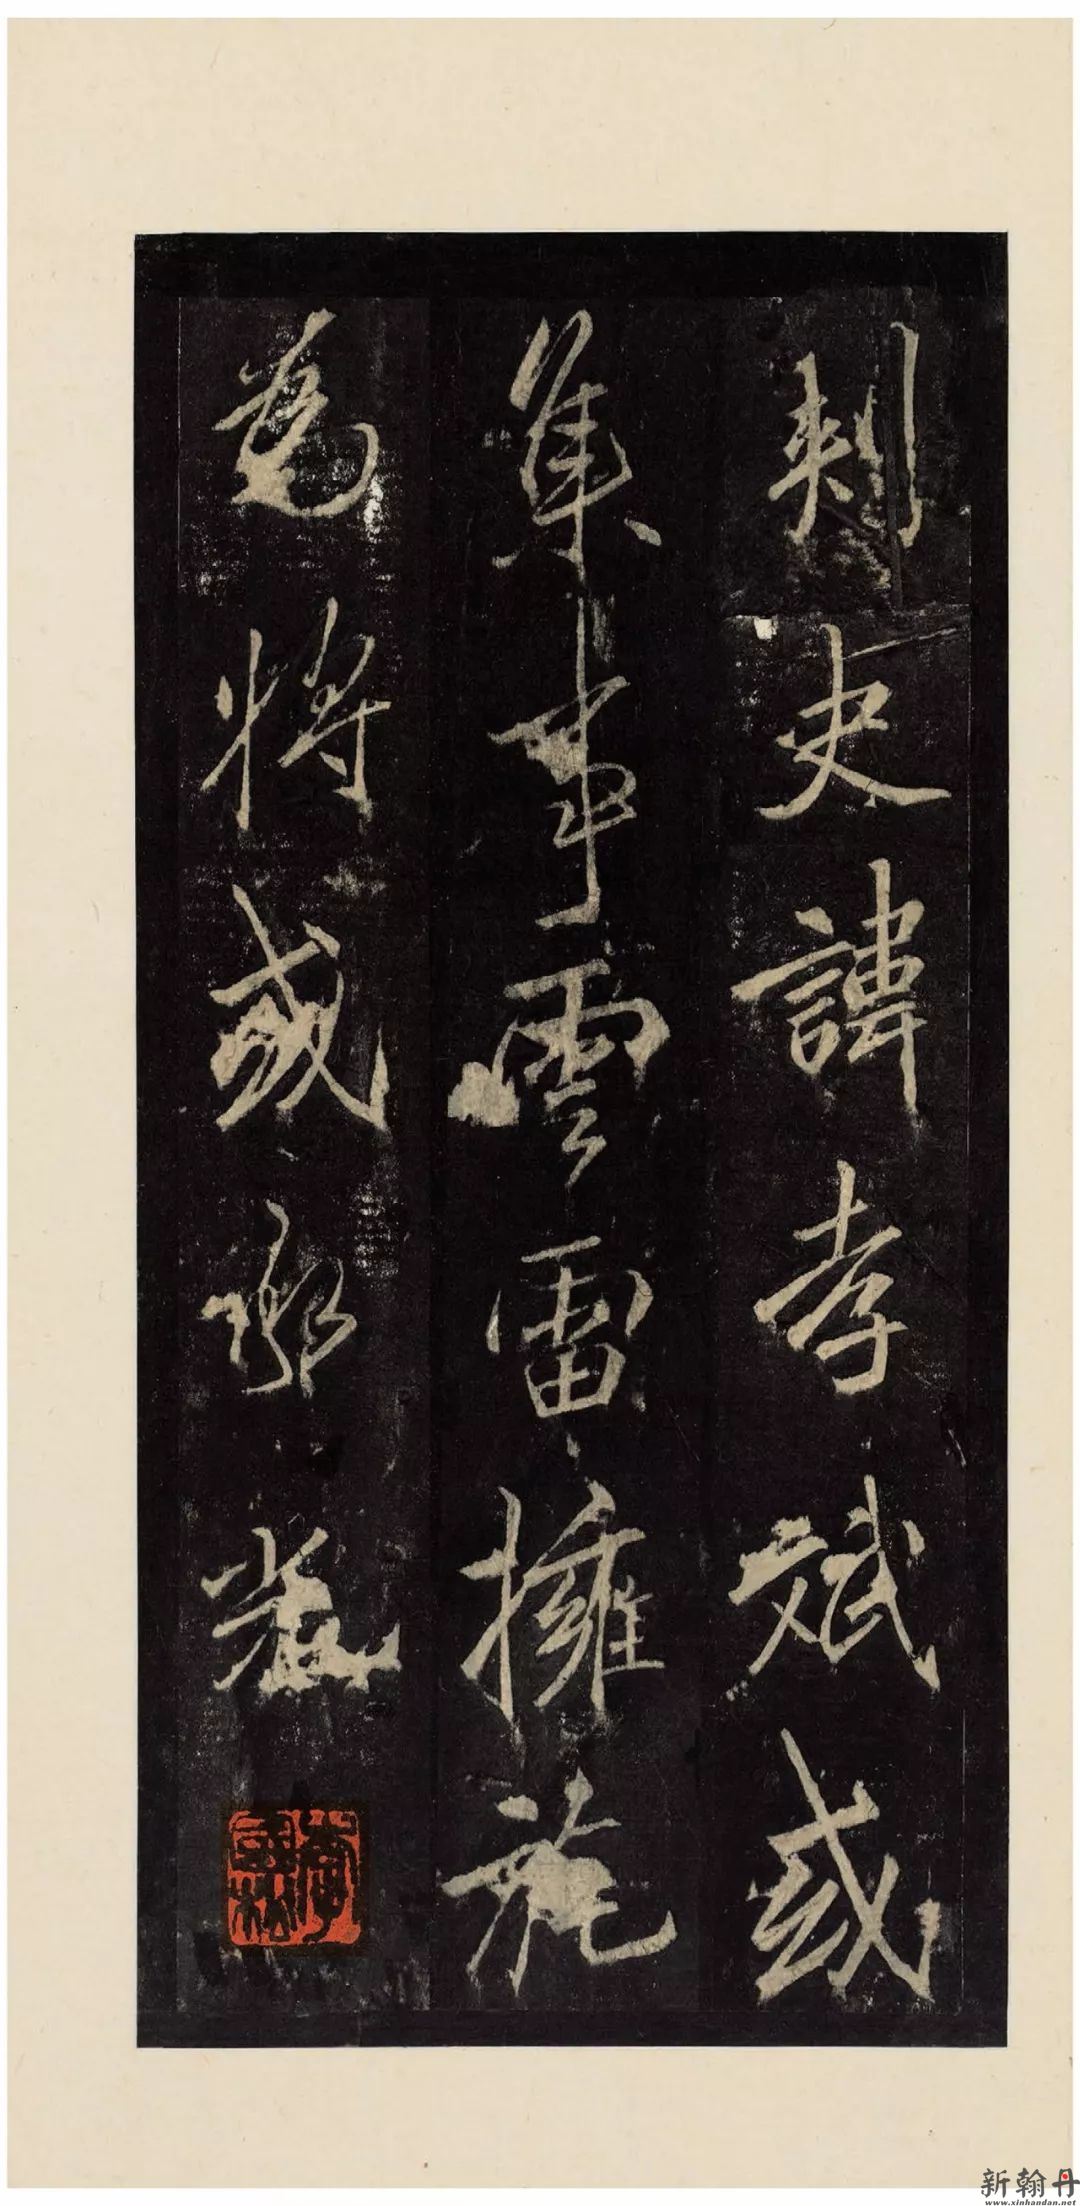 刺史諱孝斌或
集事雲雷擁旄
爲將或承光
新翰丹
www.xinhandan.net